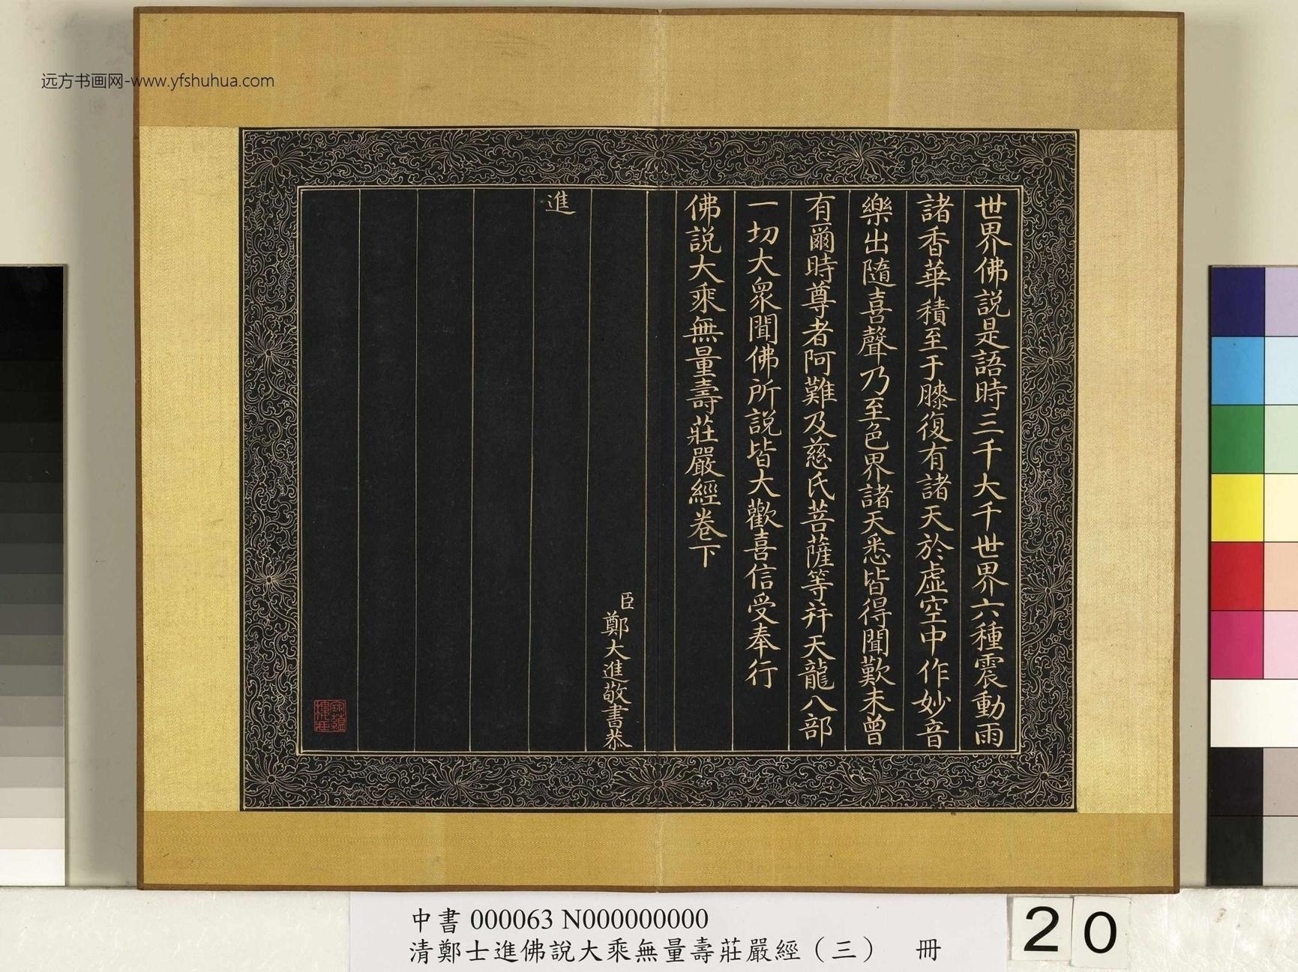 远方书画网-www.yfshuhua.com
世界佛説是語時三千大千世界六種震動雨
諸香華積至于膝復有諸天於虛空中作妙音
樂出隨喜聲乃至色界諸天悉皆得聞歎未曾
有爾時尊者阿難及慈氏菩薩等并天龍八部
一切大眾聞佛所説皆大歡喜信受奉行
佛説大乘無量壽莊嚴經卷下
臣鄭大進敬書恭
進
中書 000063 N000000000
清鄭士進佛說大乘無量壽莊嚴經（三） 冊
20